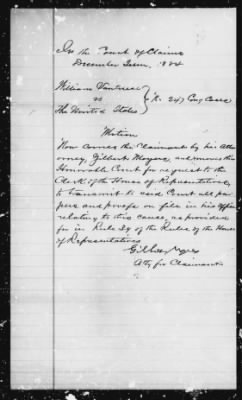 In the Court of Claims
December Term, 1884
William
vs
The United States
No. 247 Cong Case
Motion
Now comes the Claimant by his Att
orney, Gilbert Moyers, and moves the
Honorable Court for request to the
Clerk of the House of Representatives,
to transmit to said Court all pa
pers and proofs on file in his office
relating to this cause, as provided
for in Rule of the Rules of the House
of Representatives
Gilbert Moyers
Atty for Claimant